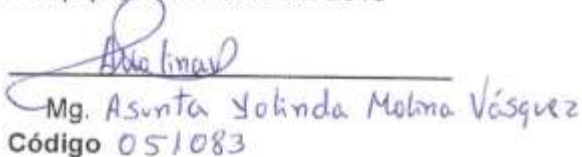 AMolinaV
Mg. Asunta Yolinda Molina Vásquez
Código 051083